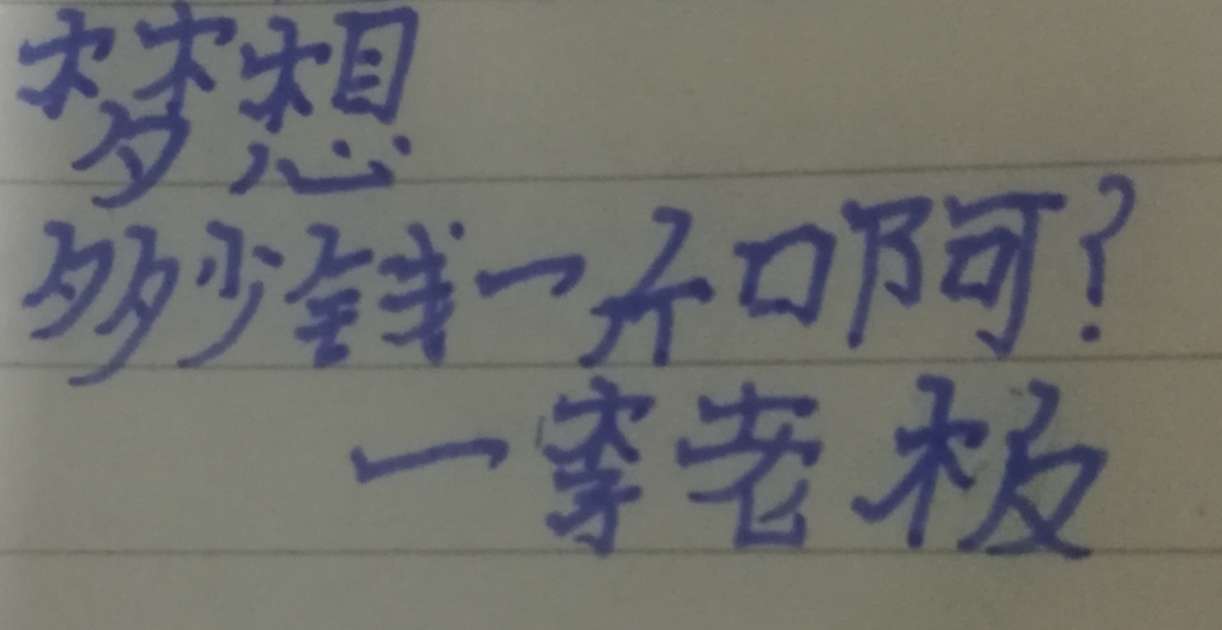 梦想
多少钱一斤啊？
一李老板